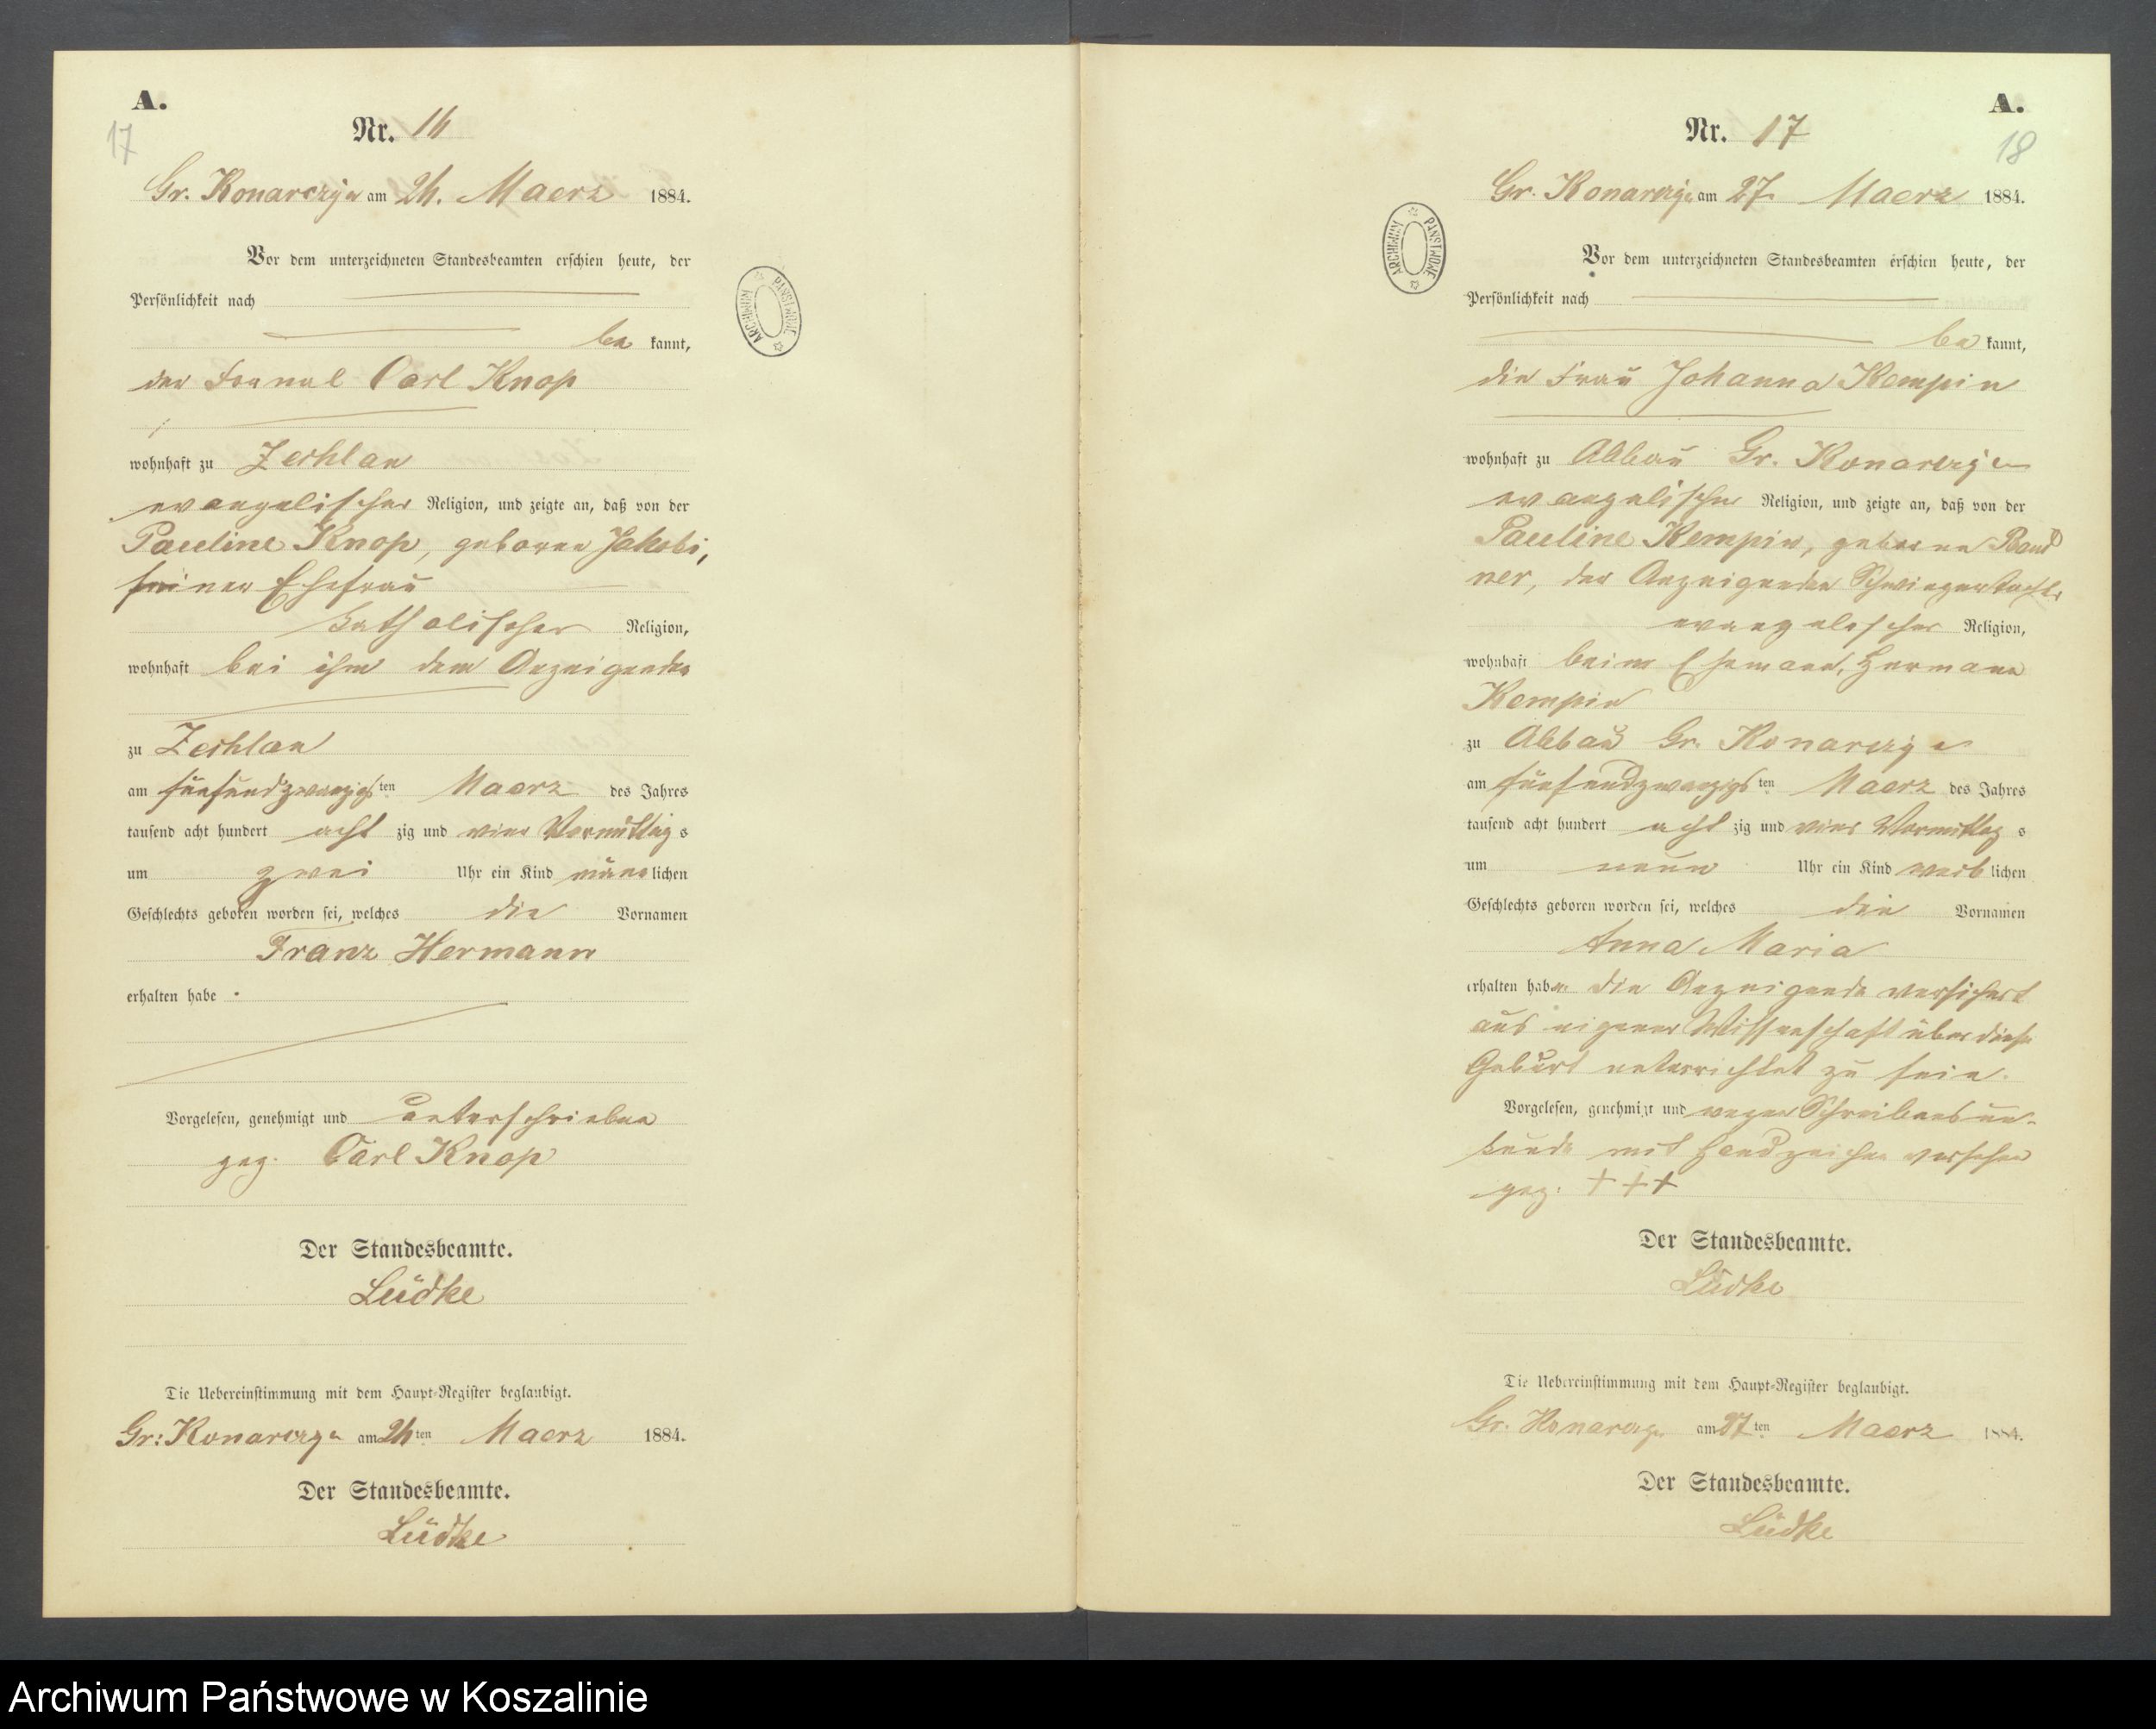 A.
17
Nr. 16
Gr. Konarczyn am 26. Maerz 1884.
Vor dem unterzeichneten Standesbeamten erschien heute, der
Persönlichkeit nach
be kannt,
der Carl Knop
wohnhaft zu Zechlau
evangelischer Religion, und zeigte an, daß von der
Pauline Knop, geborne Jakobi,
seiner Ehefrau
katholischer Religion,
wohnhaft bei ihm dem Anzeigenden
zu Zechlau
am fünfundzwanzigsten Maerz des Jahres
tausend acht hundert acht zig und vier Vormittag s
um zwei Uhr ein Kind männlichen
Geschlechts geboren worden sei, welches die Vornamen
Franz Hermann
erhalten habe.
Vorgelesen, genehmigt und unterschrieben
gez. Carl Knop
Der Standesbeamte.
Lüdke
Die Uebereinstimmung mit dem Haupt-Register beglaubigt.
Gr: Konarczyn am 26ten Maerz 1884.
Der Standesbeamte.
Lüdke
ARCHIWUM PAŃSTWOWE
A.
18
Nr. 17
Gr. Konarczyn am 27. Maerz 1884.
Vor dem unterzeichneten Standesbeamten erschien heute, der
Persönlichkeit nach
be kannt,
die Frau Johanna Kempin
wohnhaft zu Abbau Gr. Konarczyn
evangelischer Religion, und zeigte an, daß von der
Pauline Kempin, geborne
ner, der Anzeigenden Schwiegertochter
evangelischer Religion,
wohnhaft beim Ehemann, Hermann
Kempin
zu Abbau Gr. Konarczyn
am fünfundzwanzigsten Maerz des Jahres
tausend acht hundert acht zig und vier Vormittag s
um neun Uhr ein Kind weiblichen
Geschlechts geboren worden sei, welches die Vornamen
Anna Maria
erhalten habe. die Anzeigende versichert
aus eigener Wissenschaft über diese
Geburt unterrichtet zu sein.
Vorgelesen, genehmigt und wegen Schreibensun-
kunde mit Handzeichen versehen
gez. + + +
Der Standesbeamte.
Lüdke
Die Uebereinstimmung mit dem Haupt-Register beglaubigt.
Gr. Konarczyn am 27ten Maerz 1884.
Der Standesbeamte.
Lüdke
ARCHIWUM PAŃSTWOWE
Archiwum Państwowe w Koszalinie